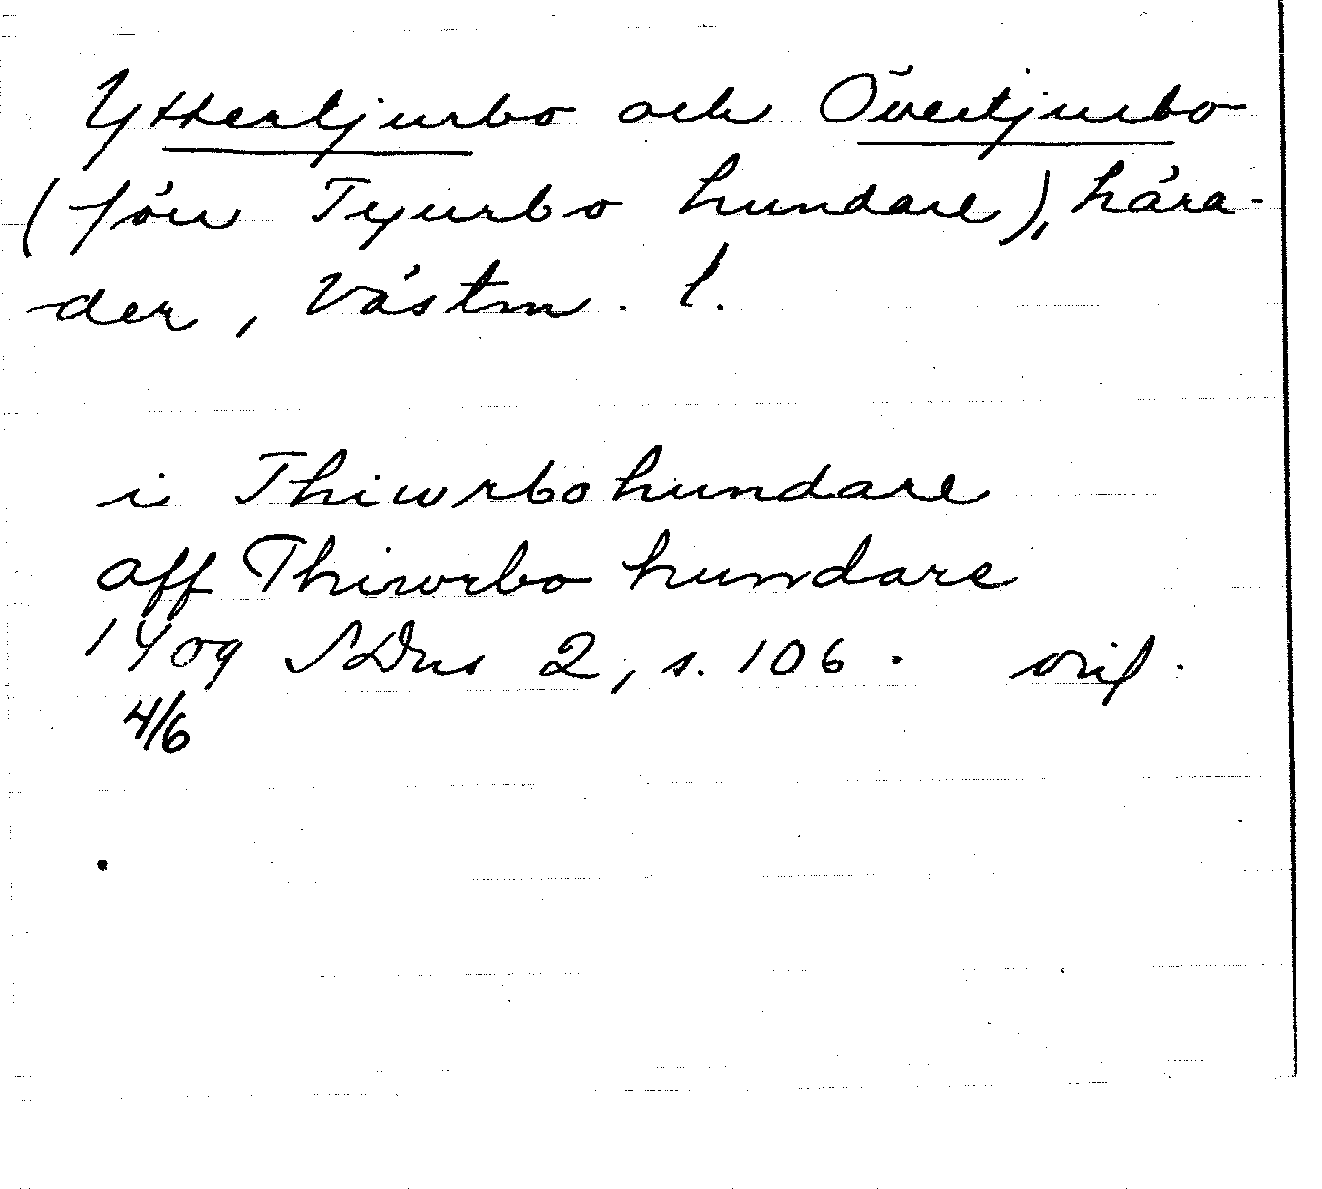 Yttertjurbo och Övertjurbo
(förr Tjurbo hundare), hära-
der, Västm. l.
i Thiwrbohundare
aff Thiwrbo hundare
1409 SDns 2, s. 106. orig.
4/6